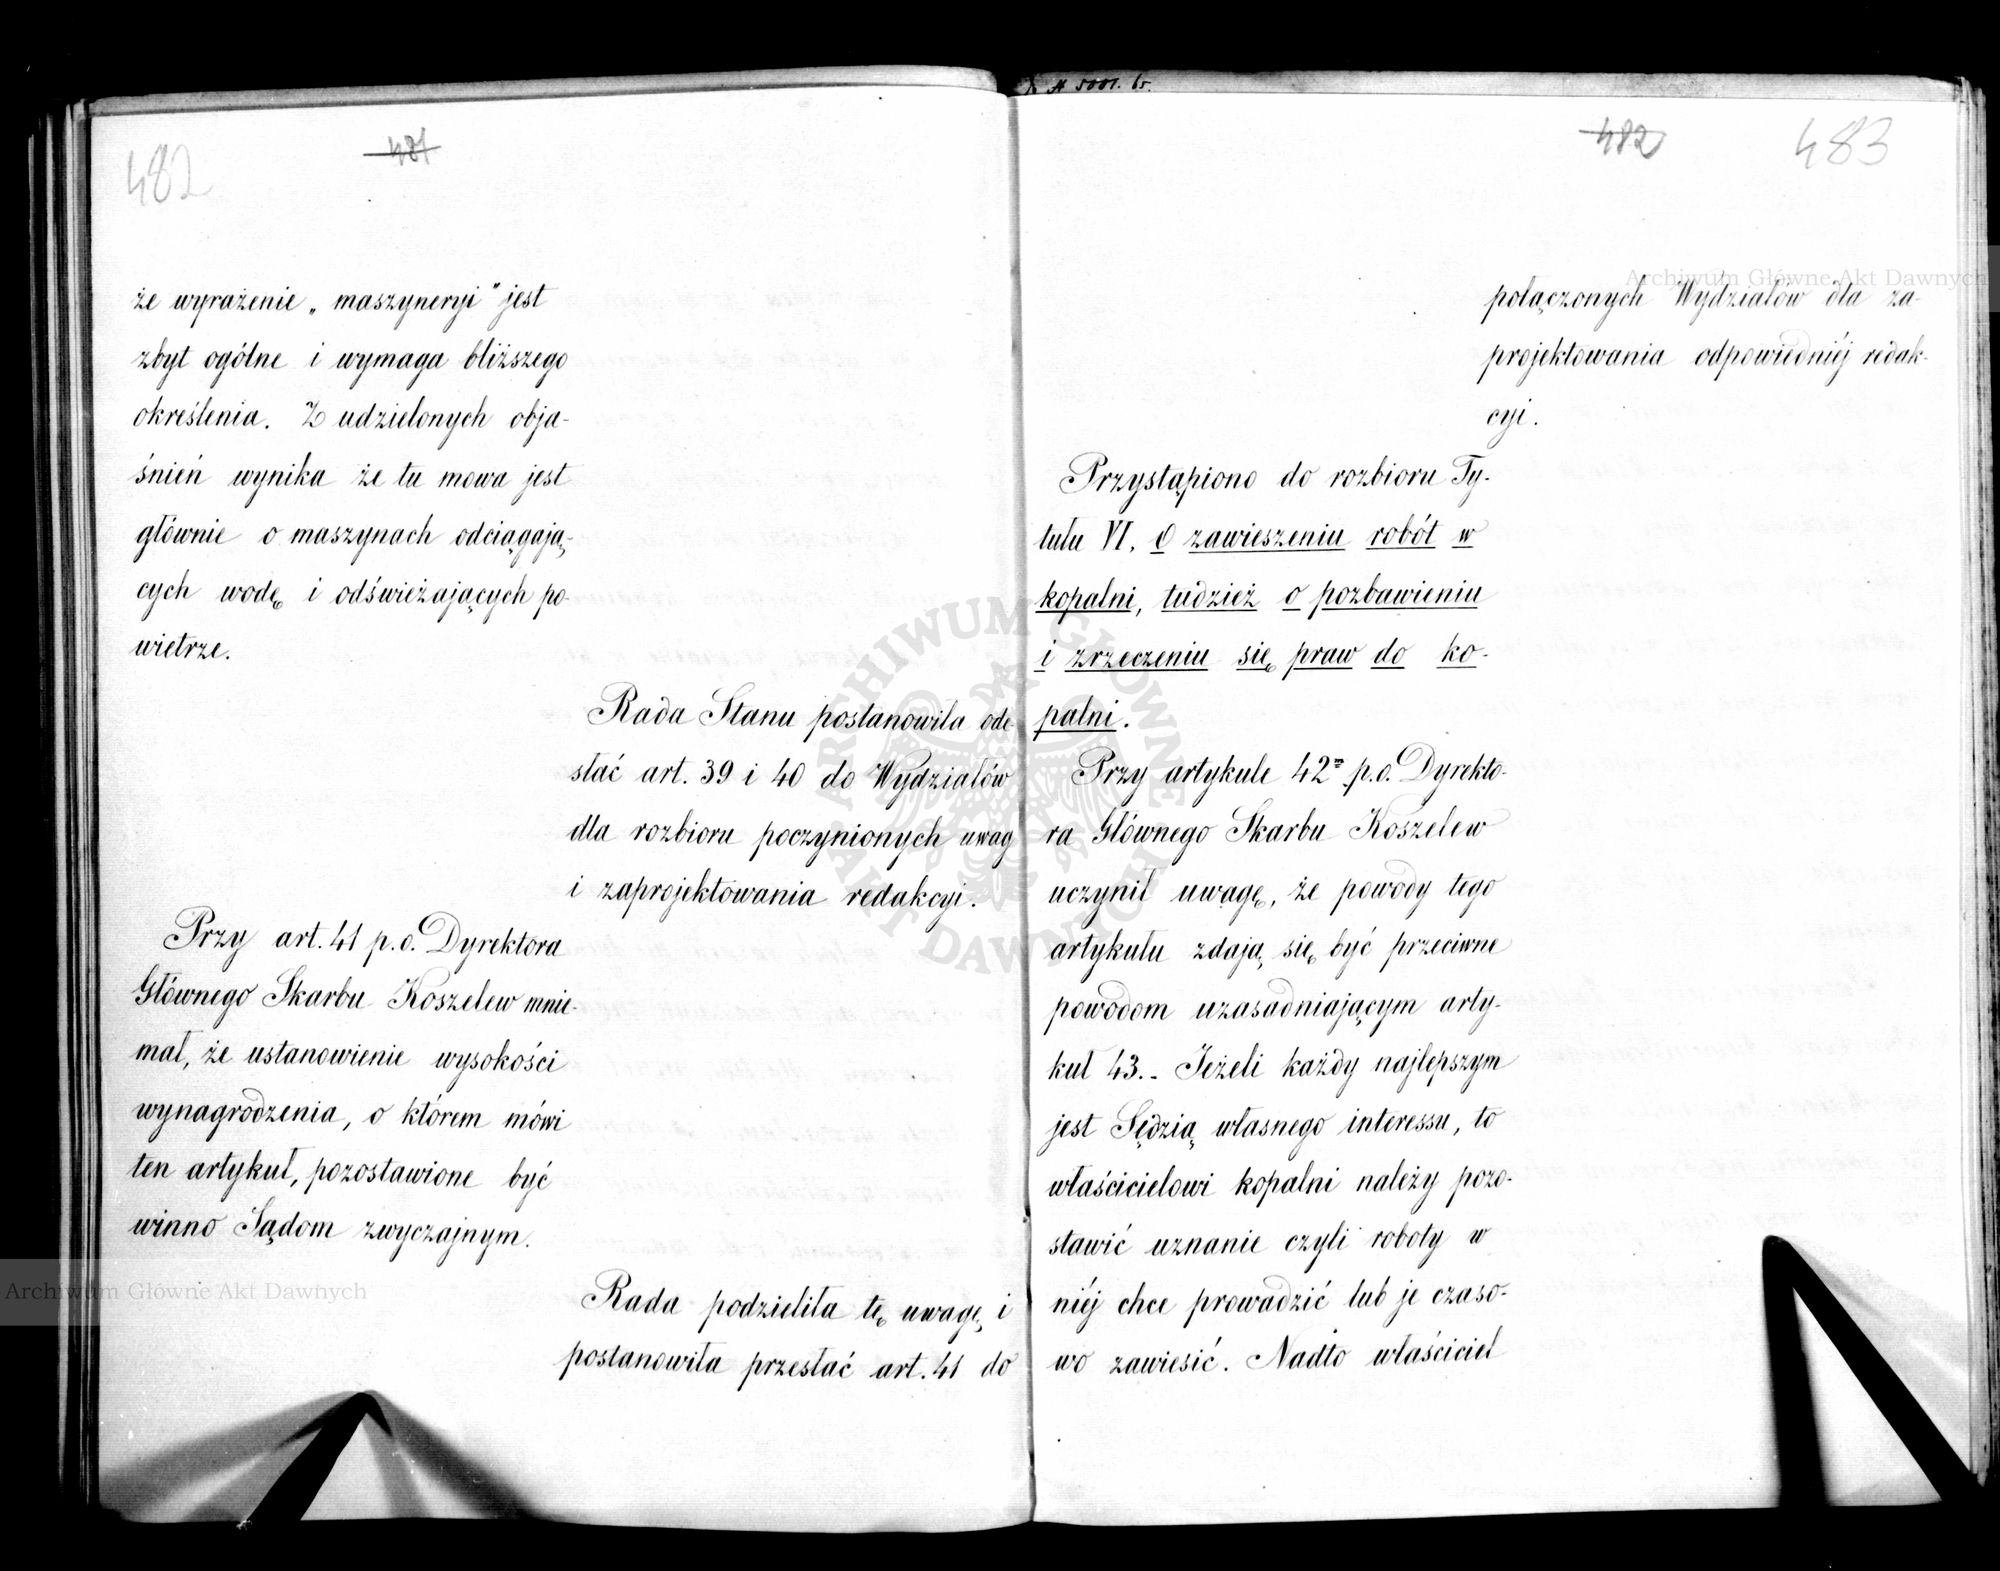 482
481
że wyrażenie „maszyneryi" jest
zbyt ogólne i wymaga bliższego
określenia. Z udzielonych obja-
śnień wynika że tu mowa jest
głównie o maszynach odciągają-
cych wodę i odświeżających po-
wietrze.
Rada Stanu postanowiła ode-
słać art. 39 i 40 do Wydziałów
dla rozbioru poczynionych uwag
i zaprojektowania redakcyi.
Przy art. 41 p.o. Dyrektora
Głównego Skarbu Koszelew mnie-
mał, że ustanowienie wysokości
wynagrodzenia, o którem mówi
ten artykuł, pozostawione być
winno Sądom zwyczajnym.
Rada podzieliła tę uwagę i
postanowiła przesłać art. 41 do
482
483
połączonych Wydziałów dla za-
projektowania odpowiedniéj redak-
cyi.
Przystąpiono do rozbioru Ty-
tułu VI. O zawieszeniu robót w
kopalni, tudzież o pozbawieniu
i zrzeczeniu się praw do ko-
palni.
Przy artykule 42m p.o. Dyrekto-
ra Głównego Skarbu Koszelew
uczynił uwagę, że powody tego
artykułu zdają się być przeciwne
powodom uzasadniającym arty-
kuł 43. - Jeżeli każdy najlepszym
jest Sędzią własnego interessu, to
właścicielowi kopalni należy pozo-
stawić uznanie czyli roboty w
niéj chce prowadzić lub je czaso-
wo zawiesić. Nadto właściciel
Archiwum Główne Akt Dawnych
Archiwum Główne Akt Dawnych
ARCHIWUM GŁÓWNE AKT DAWNYCH